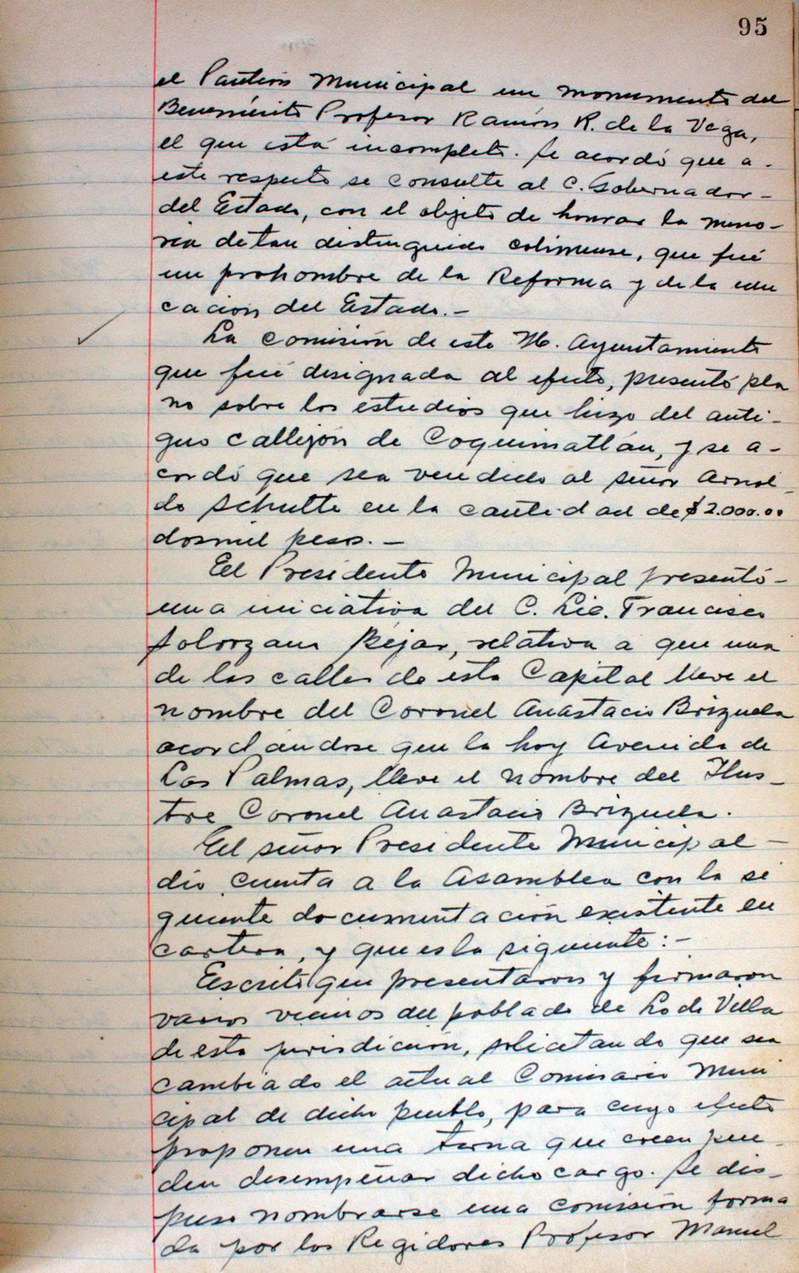 95
el Panteón Municipal un monumento del
Benemérito Profesor Ramón R. de la Vega,
el que está incompleto. Se acordó que a-
este respecto se consulte al C. Gobernador-
del Estado, con el objeto de honrar la memo-
ria de tan distinguido colimense, que fué
un prohombre de la Reforma y de la edu
cación del Estado.-
La comisión de este H. Ayuntamiento
que fué designada al efecto, presentó pla
no sobre los estudios que hizo del anti-
guo callejón de Coquimatlán, y se a-
cordó que sea vendido al señor Arnol-
do Schulte en la cantidad de $2.000.00
dosmil pesos.-
El Presidente Municipal presentó-
una iniciativa del C. Lic. Francisco
Solorzano Béjar, relativa a que una
de las calles de esta Capital lleve el
nombre del Coronel Anastacio Brizuela
acordándose que la hoy Avenida de
Las Palmas, lleve el nombre del Ilus-
tre Coronel Anastacio Brizuela.
El señor Presidente Municipal-
dió cuenta a la Asamblea con la si
guiente documentación existente en
cartera, y que es la siguiente:-
Escrito que presentaron y firmaron
varios vecinos del poblado de Lo de Villa
de esta jurisdicción, solicitando que sea
cambiado el actual Comisario Muni
cipal de dicho pueblo, para cuyo efecto
proponen una terna que creen pue-
den desempeñar dicho cargo. Se dis-
puso nombrarse una comisión forma
da por los Regidores Profesor Manuel